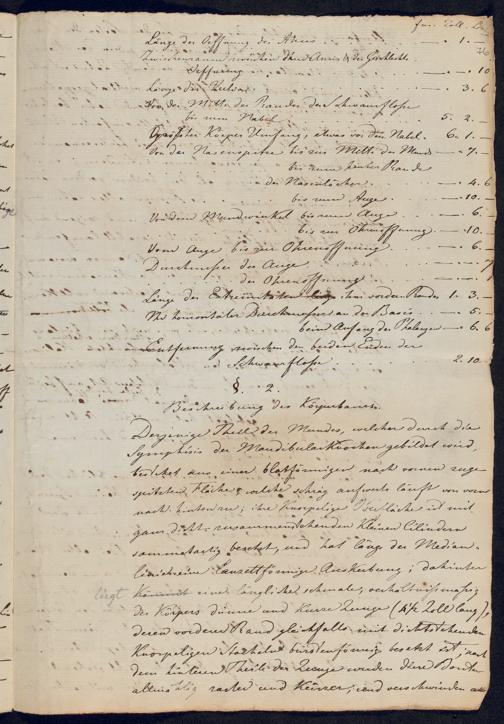 Fuss Zoll Lin
76
Länge der Oeffnung des Anus . . . — . 1 . —
Zwischenraum zwischen dem Anus & der Geschlechts
Oeffnung . . . — . — . 10
Länge der . . . — . 3 . 6
Von der Mitte des Randes der Schwanzflosse
bis zum Nabel . . . 5. 2. —
Grösster Körper Umfang, etwas vor dem Nabel . 6 . 1. —
Von der Nasenspitze bis zur Mitte des Mundes — . 7. —
bis zum hintern Rande
der Nasenlöcher . . . — . 4. 6
bis zum Auge . . . — . 10. —
Von dem Mundwinkel bis zum Auge . . — . 6. —
bis zur Ohrenöffnung — . 10. —
Vom Auge bis zur Ohrenöffnung . . — . 6. —
Durchmesser des Auge . . . — . — . 7
der Ohrenöffnung . . . — . — . 1
Länge der Extremitäten ihres vordern Randes 1. 3. —
Ihr horizontaler Durchmesser an der Basis . . — . 5. —
beim Anfang der Phalangen — . 6. 6
Entfernung zwischen den beiden Enden der
Schwanzflosse . . . 2. 10. —
§. 2.
Beschreibung des Körperbaues.
Derjenige Theil des Mundes, welcher durch die
Symphisis der Mandibularknochen gebildet wird,
besteht aus einer blatförmigen nach vornen zuge
spitzten Fläche, welche schräg aufwerts läuft von vorn
nach hinten zu; ihre knorpelige Oberfläche ist mit
ganz dicht zusammenstehenden kleinen Cilindern
sammetartig besetzt, und hat längs der Median-
linie eine lanzettförmige Auskerbung; dahinter
liegt eine länglicht schmale, verhältnissmässig
des Körpers dünne und kurze Zunge ( Zolle lang),
deren vordere Rand gleichfalls mit dichtstehenden
knorpeligen Stacheln bürstenförmig besetzt ist; nach
dem hinteren Theile der Zunge werden diese Borsten
allmählig rarer und kürzer, und verschwinden